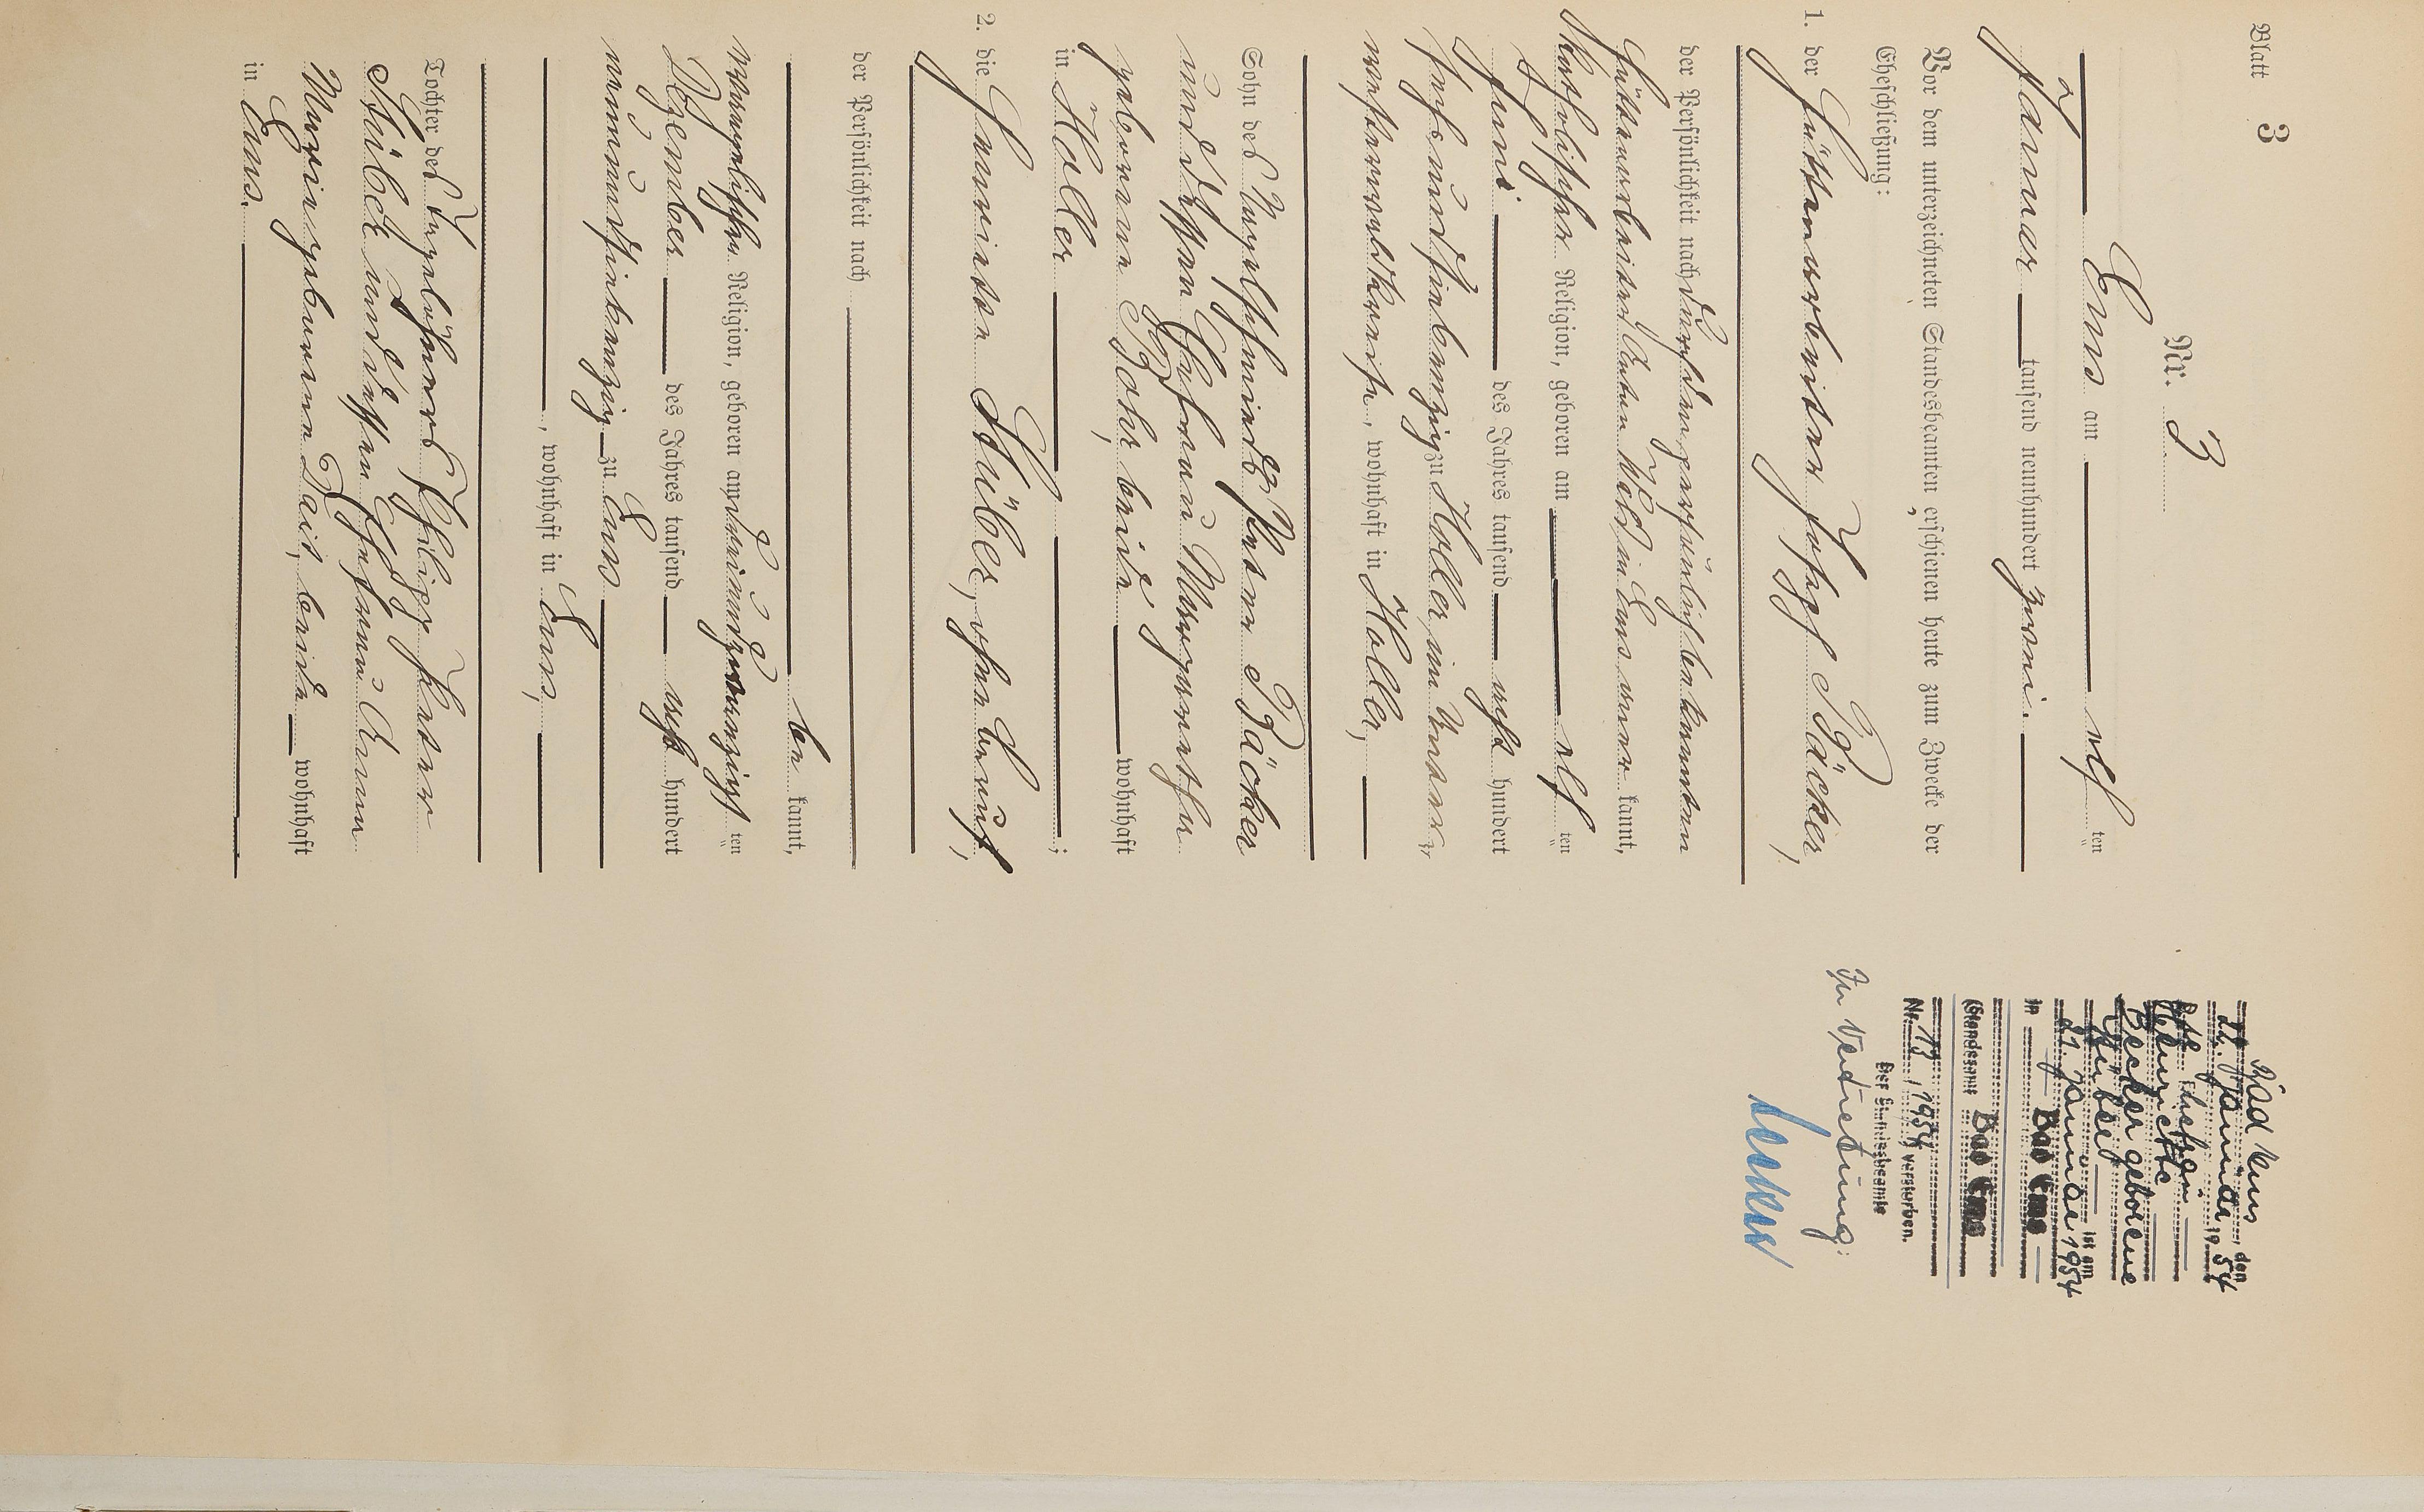 Blatt 3
Nr. 3
Ems am elf ten
Januar tausend neunhundert zwei.
Vor dem unterzeichneten Standesbeamten erschienen heute zum Zwecke der
Eheschließung:
1. der Hüttenarbeiter Josef Bäcker,
der Persönlichkeit nach durch den persönlich bekannten
Hüttenarbeiter Anton Held in Ems aner kannt,
katholischer Religion, geboren am elf ten
Juni des Jahres tausend acht hundert
sechsundsiebenzig zu Holler, im Unter-
westerwaldkreise, wohnhaft in Holler,
Sohn des Nagelschmieds Peter Bäcker
und dessen Ehefrau Margaretha
geborene Bohr, beide wohnhaft
in Holler ;
2. die Henriette Stüber, ohne Beruf,
der Persönlichkeit nach
be kannt,
evangelischer Religion, geboren am neunundzwanzigst ten
Dezember des Jahres tausend acht hundert
neunundsiebenzig zu Ems
, wohnhaft in Ems,
Tochter des Tagelöhners Philipp Peter
Stüber und dessen Ehefrau Anna
Maria geborene Deis, beide wohnhaft
in Ems.
Bad Ems, den
Januar 1954
Die Ehefrau
Henriette
Becker geborene
Stüber ist am
21. Januar 1954
in Bad Ems
(Standesamt Bad Ems
Nr. 13/1954) verstorben.
Der Standesbeamte
In Vertretung: